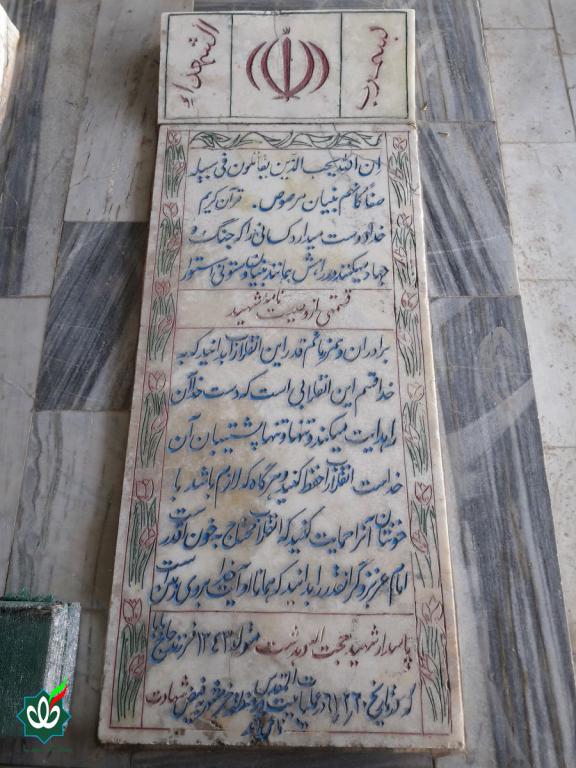 بسم رب
الشهداء
ان الله یحب الذین یقاتلون فی سبیله
صفا کانهم بنیان مرصوص. قرآن کریم
خدا دوست میدارد کسانی را که جنگ و
جهاد میکنند در راهش همانند بنیان و ستونی استوار
قسمتی از وصیت نامه شهید
برادران و همرزمانم قدر این انقلاب را بدانید که به
خدا قسم این انقلابی است که دست خدا آن
را هدایت میکند و تنها و تنها پشتیبان آن
خداست انقلاب را حفظ کنید و هر گاه که لازم باشد با
خونتان آنرا حمایت کنید که انقلاب محتاج به خون است قدر
امام عزیز و گرانقدر را بدانید که همانا او آیت خدا بر روی زمین است
پاسدار شهید حجت اله متولد ۱۳۴۳ فرزند
که در تاریخ در عملیات بیت المقدس در خرمشهر به فیض شهادت
نائل آمد